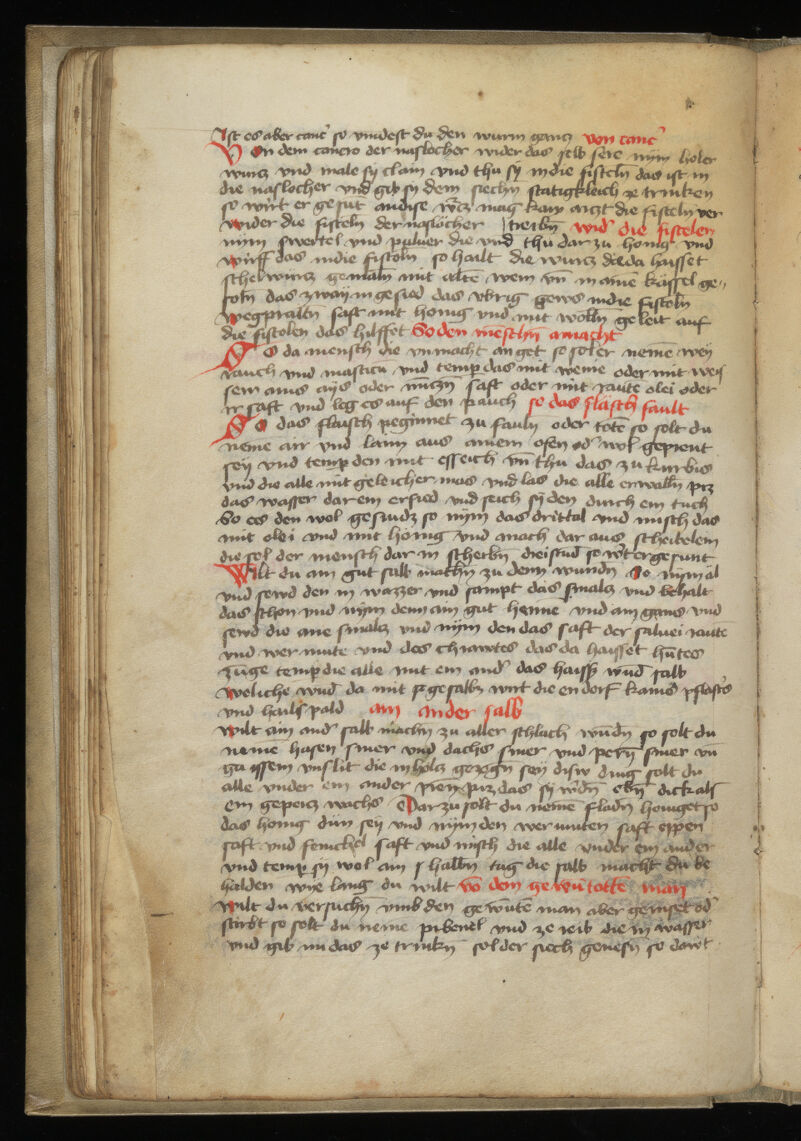 Ist es aber canc so vindest du den wurm gancz von canc
Von dem cancro der naslocher wider das selb sere nym holer
wurcz vnd male sy clain vnd thu sy in die fisteln das ist in
die naslocher vnd gib sy dem siechn statigkleich ze trinken
so wirt er gesut an dise wcz mag kain arczt die fisteln ver
wider die fisteln der naslöcher treibn wid die fistelen
nym swertel vnd puluer die vnd thu dar zu honig vnd
wirff das in die fistoln so hailt die wurcz die da haisset
schelwurcz gemaln mit altē wein vn in ainē kässel ge
soln das zway in gesied das vbrig gews in die fistoln
wegpraitn saft mit honig vnd mit wolln geleit auf
die fistolen das hilffet So den menschn amacht
So da mensch die vnmacht an get so sol er nemē wey
rauch vnd masticū vnd temp das mit weine oder mit weis
sem ains ays oder mīczn saft oder mit raute olei oder
ir saft vnd leg es auf den pauch so das flaisch fault
So das flaisch peginnet zu fauln oder totē so solt du
neme air vnd laim aus ainem ofen od wol geprent
sey vnd temp den mit esseich vn thu das zu kurbis
vnd die alle mit geleicher mas vnd las die alle erwalln piz
das wasser dar ein ersied vnd seich sy den durch ein tuch
So es den wol gesiudz so nym das drittal vnd misch das
mit olei vnd mit honig vnd mach dar aus scheibelein
die sol der mensch dar in scherbn drei stud so wt er gesunt
Wilt du ain gut salb machn zu denn wundn So nym äl
vnd sewd den in wazzer vnd sampt das smalcz vnd behalt
das schon vnd nym denn ain gut henne vnd ain gans vnd
sewd die ane smalcz vnd nym den das saft der saluei raute
vnd wermute vnd des chrawtes das da haisset hūtes
zunge temp die alle mit ein and das haiss wūd salb
Weliche wūd da mit gesalbz wirt die endorf kains pflastrs
vnd hails pald ain ander salb
Wilt ain and salb machn zu aller schlach wūdn so solt du
neme hasen smer vnd dachs smer vnd pern smer vn
gaissem vnslit die in holcz gezogn sey disw ding solt du
alle vnder ein ander piz das sy wdn dick als
ein gepercz wachs Dar zu solt du neme fladn honiget so
das honig dün sey vnd nym den wermuten saft eppen
saft vnd fenichel saft vnd misch die alle vnder ein ander
vnd temp sy wol ain halbn tag die salb macht du be
halden wie lang du wilt vō dem gewūtottē man
Wilt du versuchn vmb den gewūtē man aber geniset od
stirbt so solt du neme pibenel vnd ze reib die in wasser
vnd gib im das ze trinkn sol der siech genesn so dawt